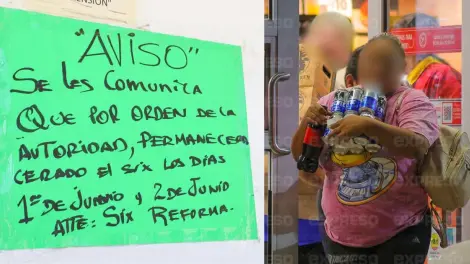 "AVISO"
SE LES COMUNICA
QUE POR ORDEN DE LA
AUTORIDAD, PERMANECERA
CERADO EL SIX LOS DIAS
1º DE JUNIO Y 2 DE JUNIO
ATTE: SIX REFORMA.
EXPRESO